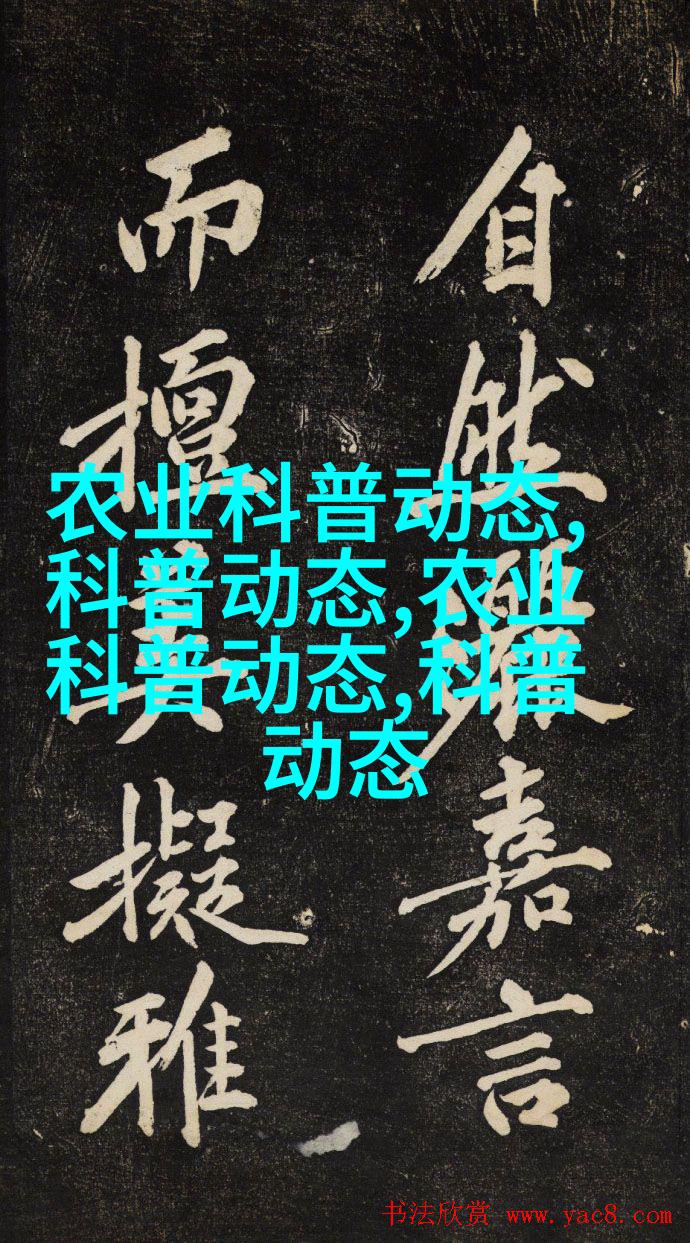 自然嘉言
而擅擬雅
农业科普动态,
科普动态,农业
科普动态,科普
动态
书法欣赏 www.yac8.com